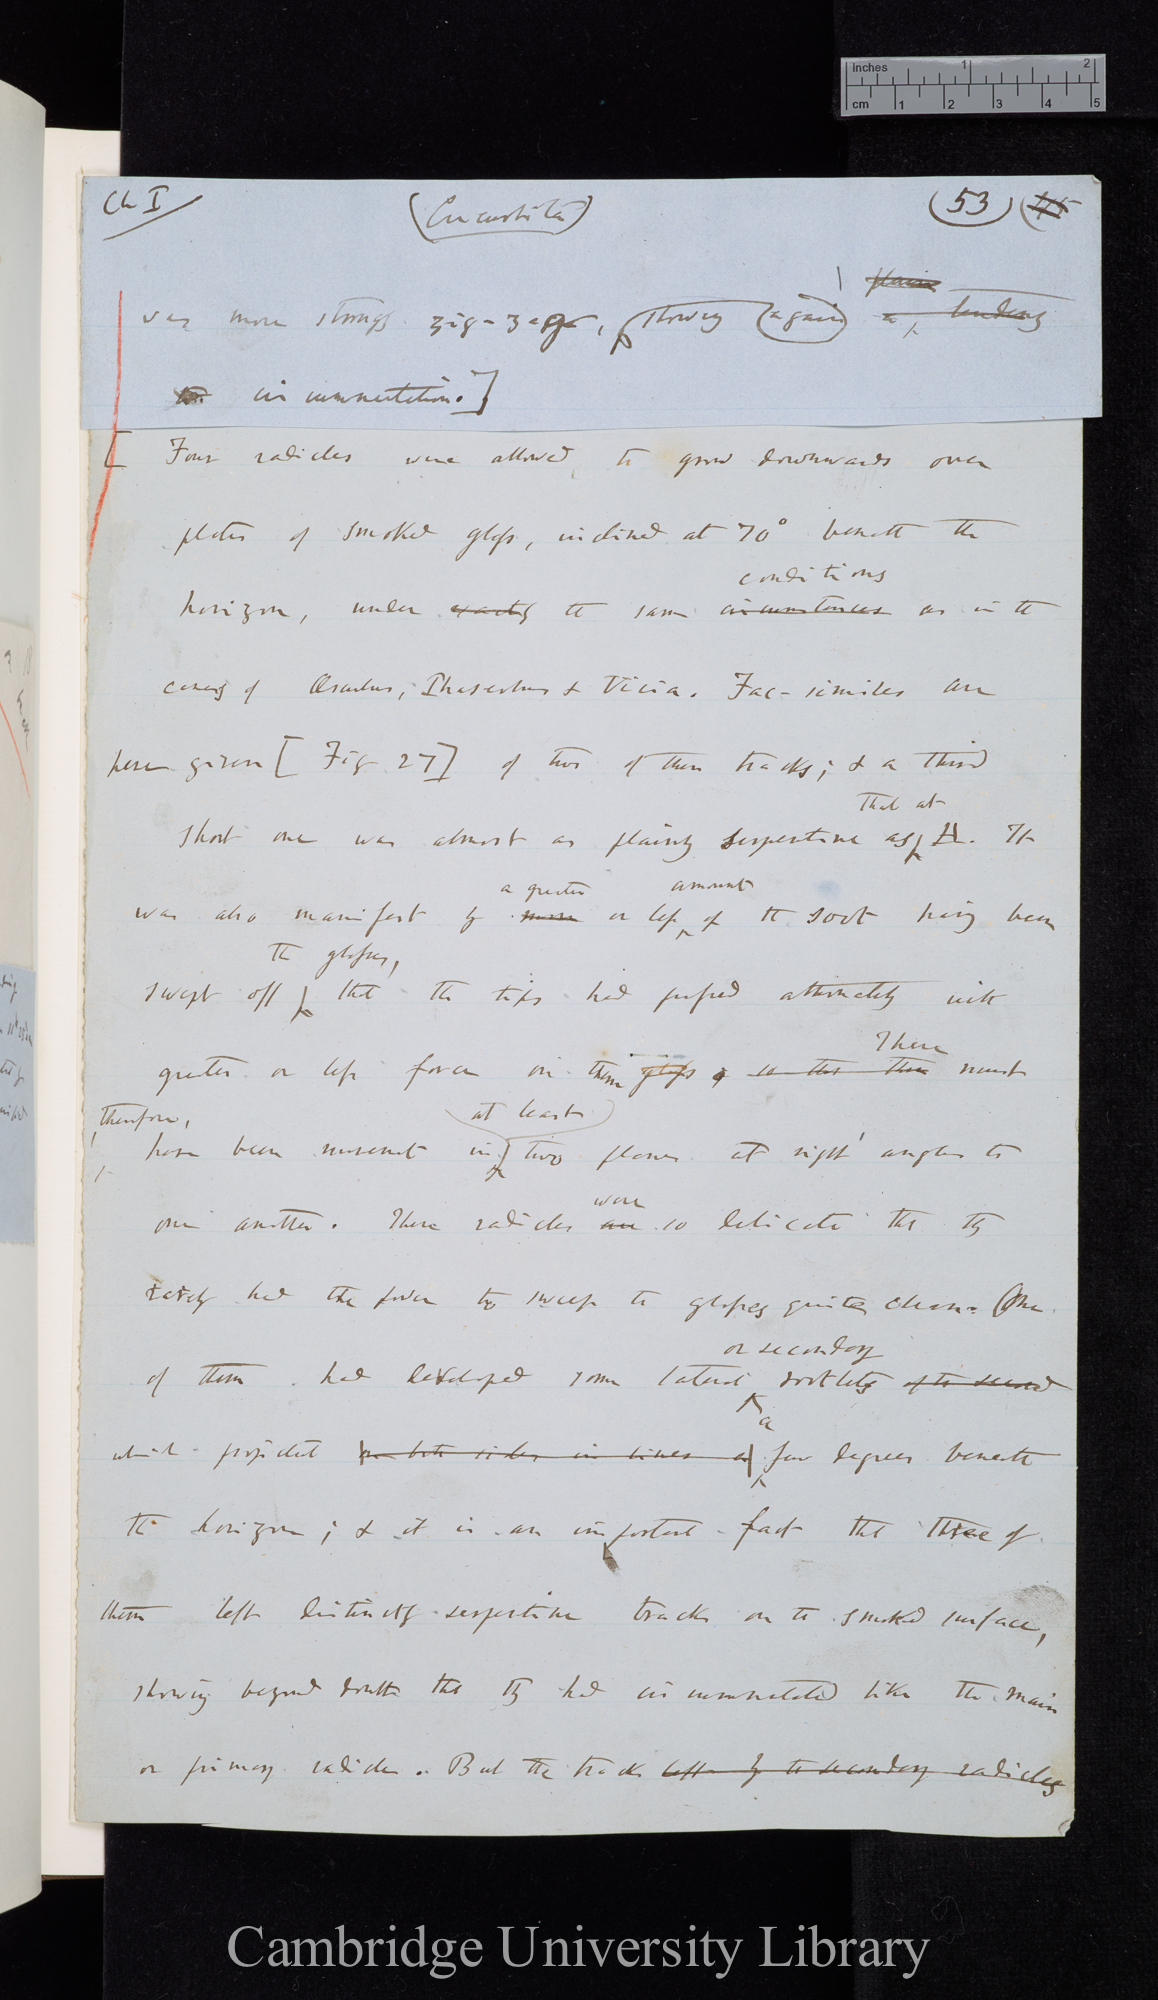 Inches 1 2
cm 1 2 3 4 5
Ch I
(Cucurbita)
(53)
plain
was more strongly zig-zag, showing (again) a tendency
to circumnutation.]
[ Four radicles were allowed to grow downwards over
plates of smoked glass, inclined at 70° beneath the
conditions
horizon, under exactly the same circumstances as in the
cases of Æsculus, Phaseolus & Vicia. Fac-similes are
here given [Fig 27] of two of these tracks; & a third
that at
short one was almost as plainly serpentine as A. It
a greater amount
was also manifest by more or less of the soot having been
the glasses,
swept off that the tips had pressed alternately with
There
greater or less force on them glass so that there must
therefore, at least
have been movement in two planes at right angles to
were
one another. These radicles are so delicate that they
rarely had the power to sweep the glasses quite clean. One
or secondary
of them had developed some lateral rootlets of the second
a
which projected on both sides in lines a few degrees beneath
the horizon; & it is an important fact that three of
them left distinctly serpentine tracks on the smoked surface,
showing beyond doubt that they had circumnutated like the main
or primary radicle. But the tracks left by the secondary radicles
Cambridge University Library